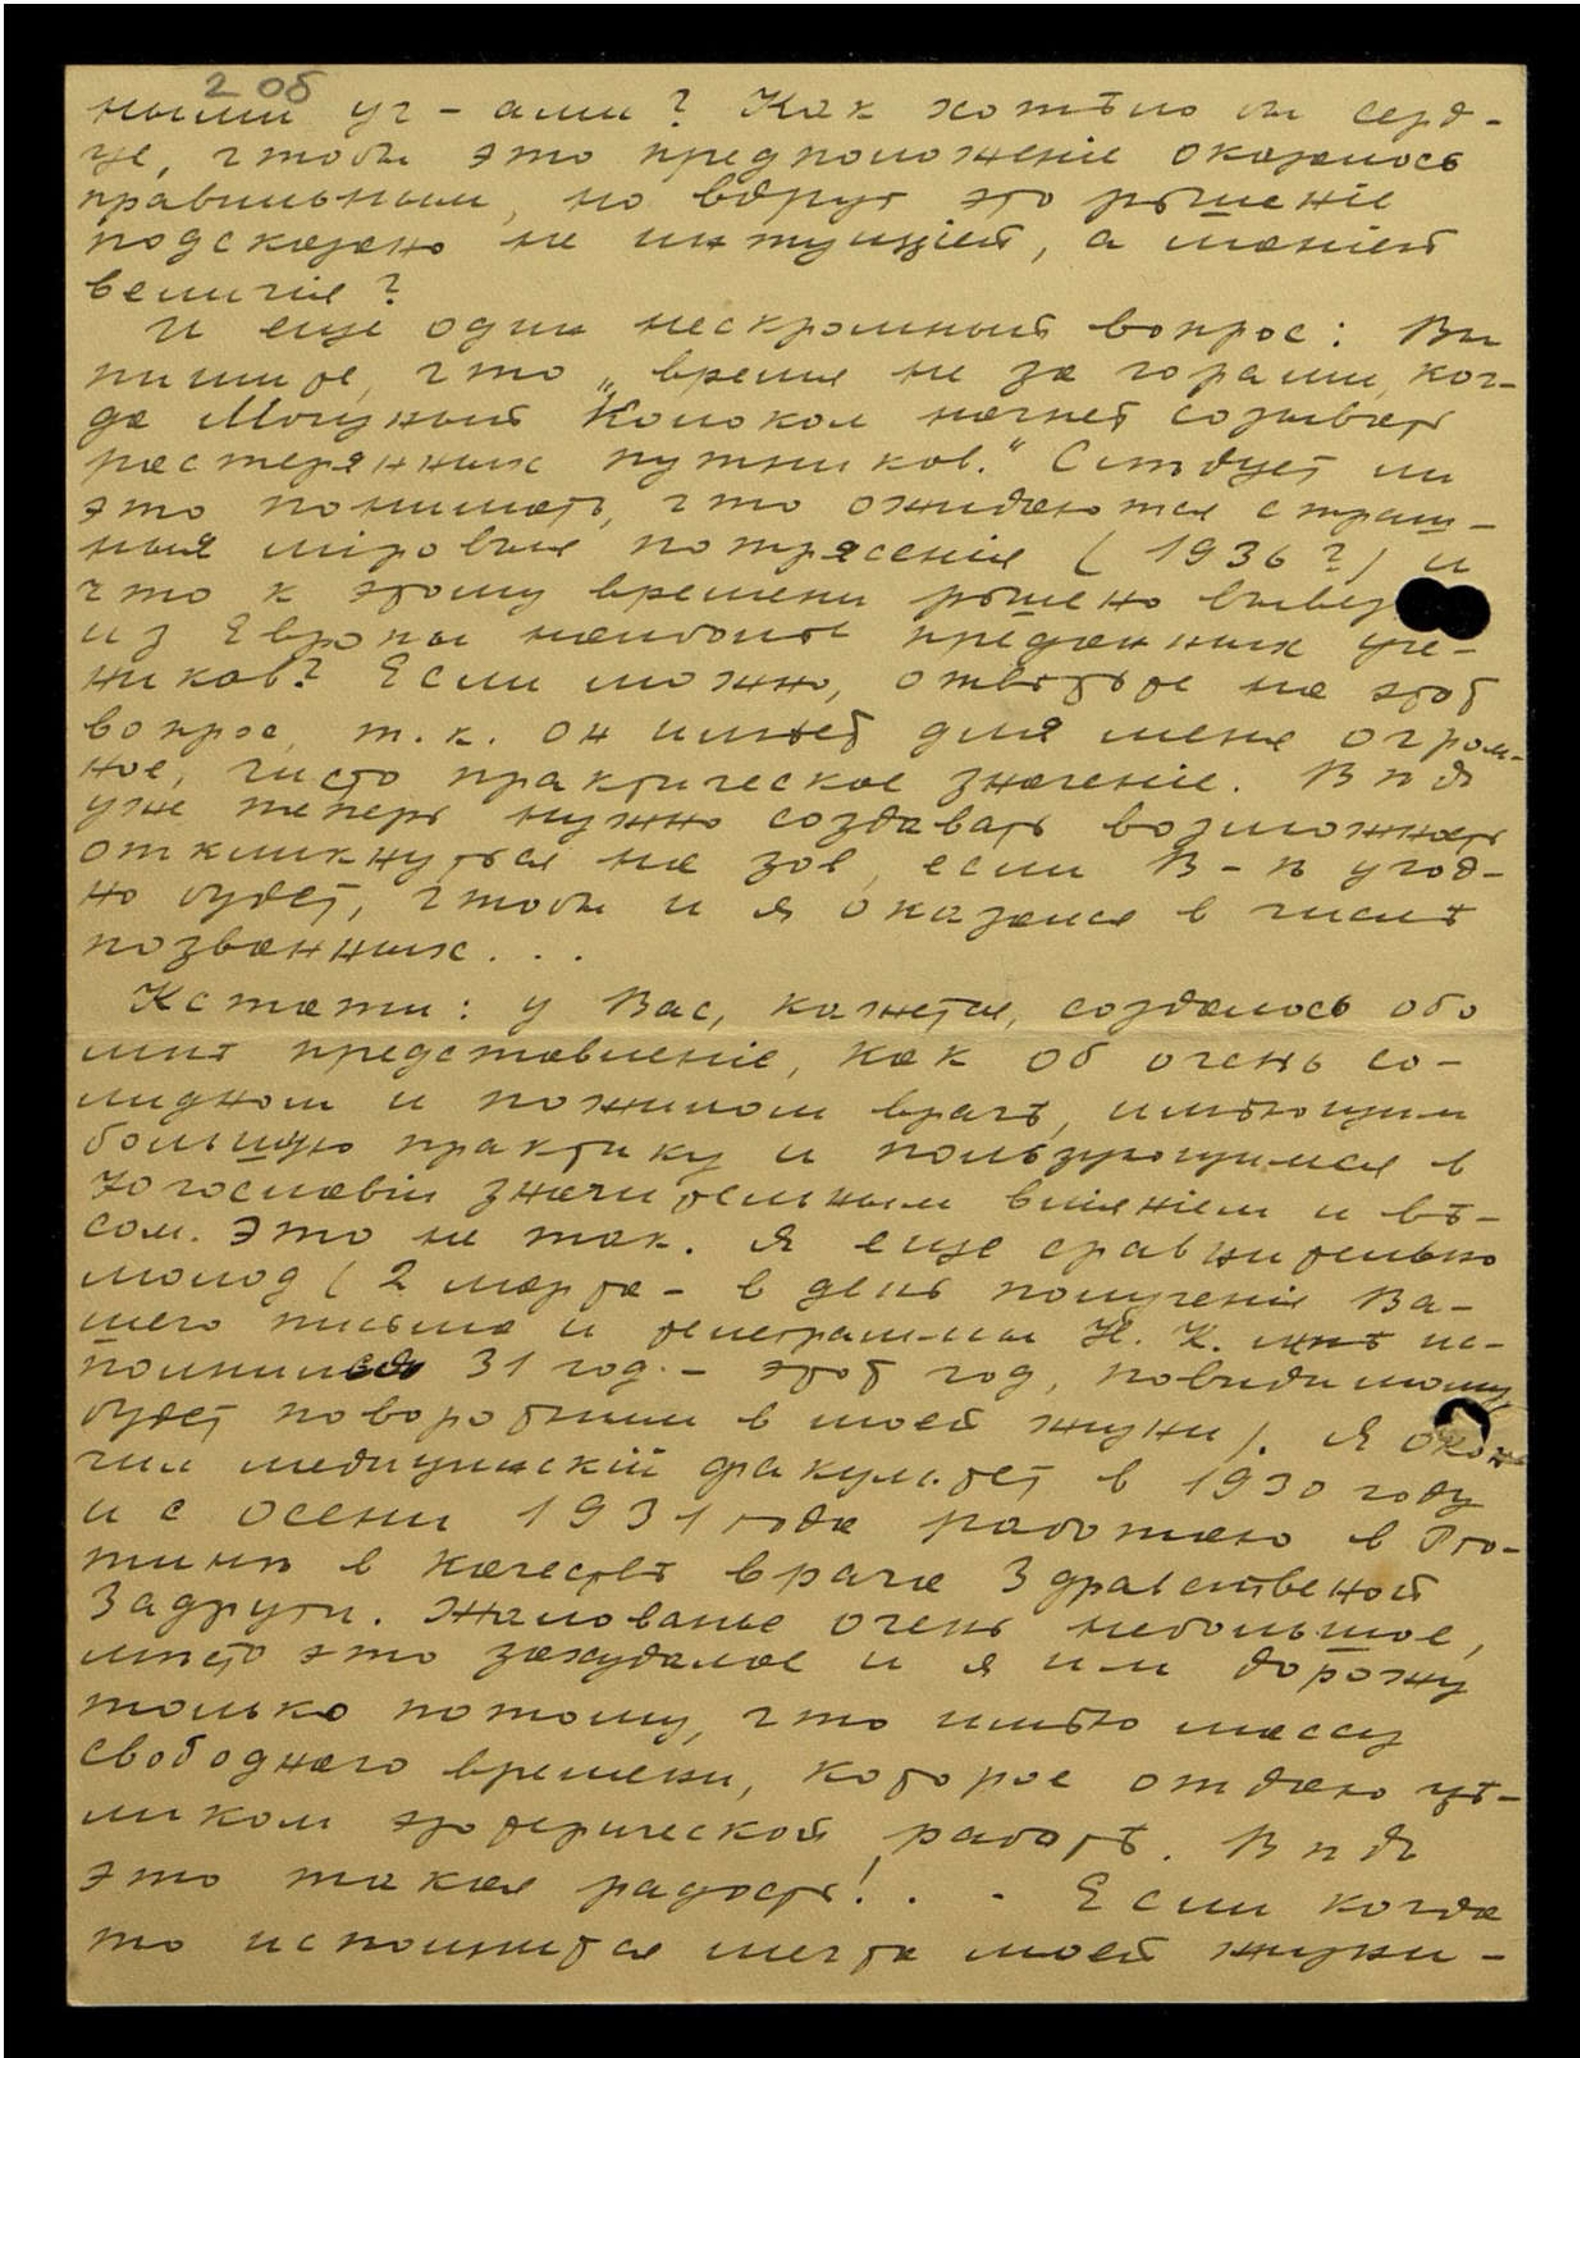 2 об
ными уч-ами? Как хотѣло бы серд-
це, чтобы это предположеніе оказалось
правильным, но вдруг это рѣшеніе
подсказано не интуиціей, а маніей
величія?
И еще один нескромный вопрос: Вы
пишите, что „время не за горами, ког-
да Мощный Колокол начнет созывать
растерянных путников." Слѣдует ли
это понимать, что ожидаются страш-
ныя міровыя потрясенія (1936?) и
что к этому времени рѣшено вывез
из Европы наиболѣе преданных уче-
ников? Если можно, отвѣтьте на этот
вопрос, т.к. он имѣет для меня огром-
ное, чисто практическое значеніе. Вѣдь
уже теперь нужно создавать возможность
откликнуться на зов, если В-ѣ угод-
но будет, чтобы и я оказался в числѣ
позванных...
Кстати: у Вас, кажется, создалось обо
мнѣ представленіе, как об очень со-
лидном и пожилом врачѣ, имѣющим
большую практику и пользующимся в
Югославіи значительным вліяніем и вѣ-
сом. Это не так. Я еще сравнительно
молод (2 марта - в день полученія Ва-
шего письма и телеграммы Н. К. мнѣ ис-
полнилось 31 год. - этот год, повидимому,
будет поворотным в моей жизни). Я окон
чил медицинскій факультет в 1930 году
и с осени 1931 года работаю в
в качествѣ врача Здравственой
Задруги. Жалованье очень небольшое,
мѣсто это захудалое и я им дорожу
только потому, что имѣю массу
свободнаго времени, которое отдаю цѣ-
ликом эзотерической работѣ. Вѣдь
это такая радость!.. - Если когда
то исполнится мечта моей жизни -